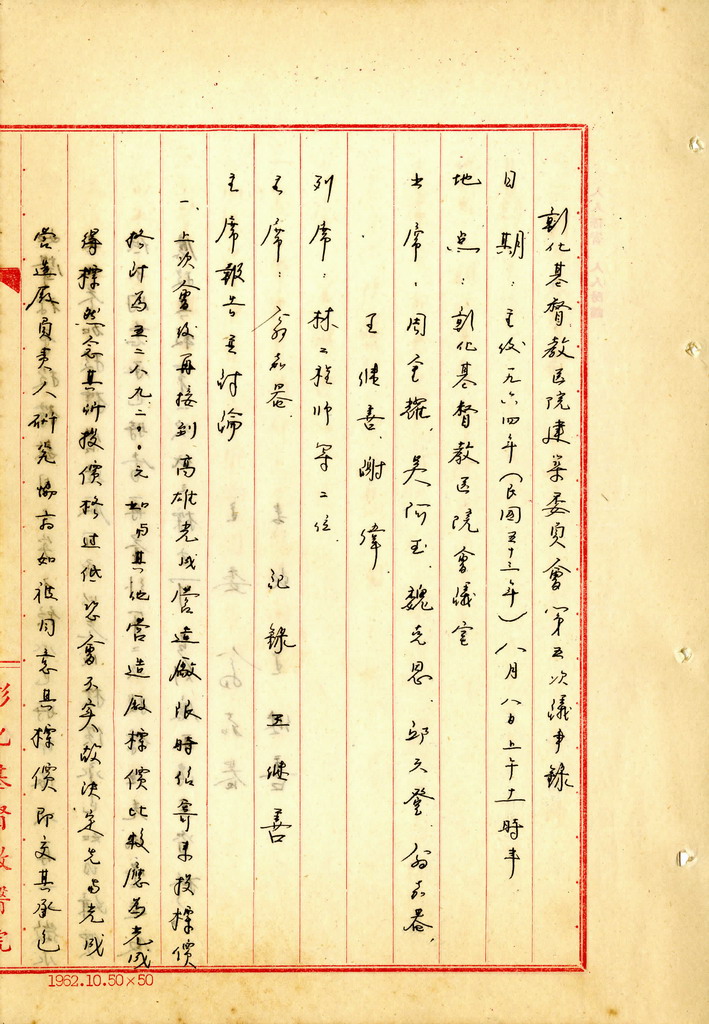 彰化基督教医院建築委員會第五次議事録
日期：主後一九六四年（民国五十三年）八月八日上午十一時半
地点：彰化基督教医院會議室
出席：周全耀、吳阿玉、魏克恩、邱天登、翁知器、
王継善、謝偉
列席：林工程師等二位
主席：翁知器 紀録 王継善
主席報告並討論
一、上次會後再接到高雄光成営造廠限時信寄来投標價
格計為五二八九二〇〇元如与其他営造廠標價比較應為光成
得標然念其所投價格过低恐會不実故決定先与光成
営造廠負責人研究協商如彼同意其標價即交其承造
彰化基督教醫院
1962.10.50×50